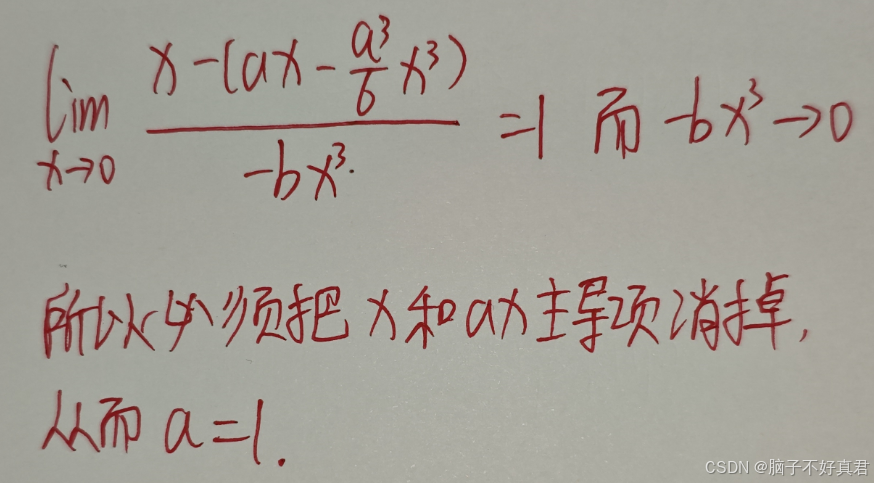 lim x→0 \frac{x-(ax-\frac{a^3}{6}x^3)}{-bx^3} =1 而 -bx^3→0
所以必须把 x 和 ax 主导项消掉,
从而 a=1.
CSDN @脑子不好真君